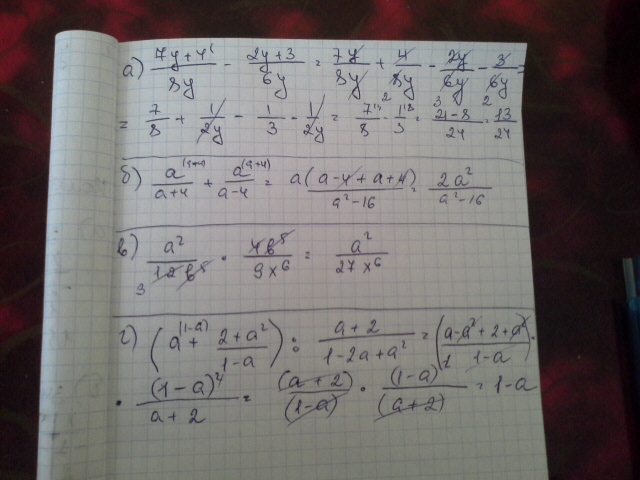 а) (7y+4)/(8y) - (2y+3)/(6y) = 7y/8y + 4/8y - 2y/6y - 3/6y =
= 7/8 + 1/2y - 1/3 - 1/2y = 7/8 - 1/3 = (21-8)/24 = 13/24
б) a^(a-4)/(a+4) + a^(a+4)/(a-4) = a(a-4+a+4)/(a²-16) = 2a²/(a²-16)
в) a²/(12b⁵) · 4b⁵/(9x⁶) = a²/(27x⁶)
г) (a^(1-a) + (2+a²)/(1-a)) : (a+2)/(1-2a+a²) = ((a-a²+2+a²)/(1-a)) ·
· (1-a)²/(a+2) = (a+2)/(1-a) · (1-a)²/(a+2) = 1-a